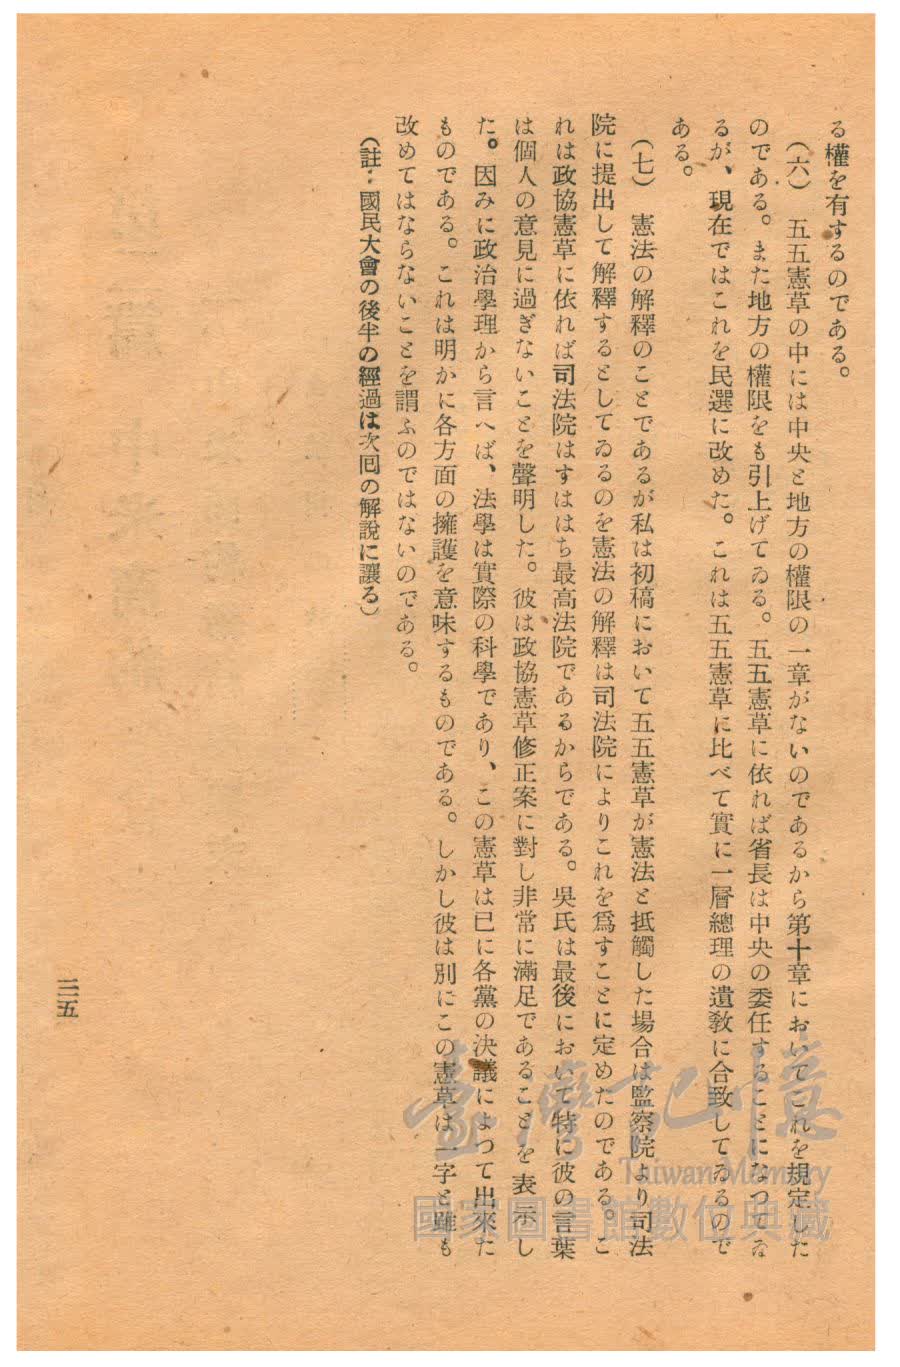 る權を有するのである。
（六）　五五憲草の中には中央と地方の權限の一章がないのであるから第十章においてこれを規定した
のである。また地方の權限をも引上げてゐる。五五憲草に依れば省長は中央の委任することになつてゐ
るが、現在ではこれを民選に改めた。これは五五憲草に比べて實に一層總理の遺敎に合致してゐるので
ある。
（七）　憲法の解釋のことであるが私は初稿において五五憲草が憲法と抵觸した場合は監察院より司法
院に提出して解釋するとしてゐるのを憲法の解釋は司法院によりこれを爲すことに定めたのである。こ
れは政協憲草に依れば司法院はすははち最高法院であるからである。吳氏は最後において特に彼の言葉
は個人の意見に過ぎないことを聲明した。彼は政協憲草修正案に對し非常に滿足であることを表示し
た。因みに政治學理から言へば、法學は實際の科學であり、この憲草は已に各黨の決議によつて出來た
ものである。これは明かに各方面の擁護を意味するものである。しかし彼は別にこの憲草は一字と雖も
改めてはならないことを謂ふのではないのである。
（註：國民大會の後半の經過は次囘の解說に讓る）
三五
臺灣記憶
Taiwan Memory
國家圖書館數位典藏